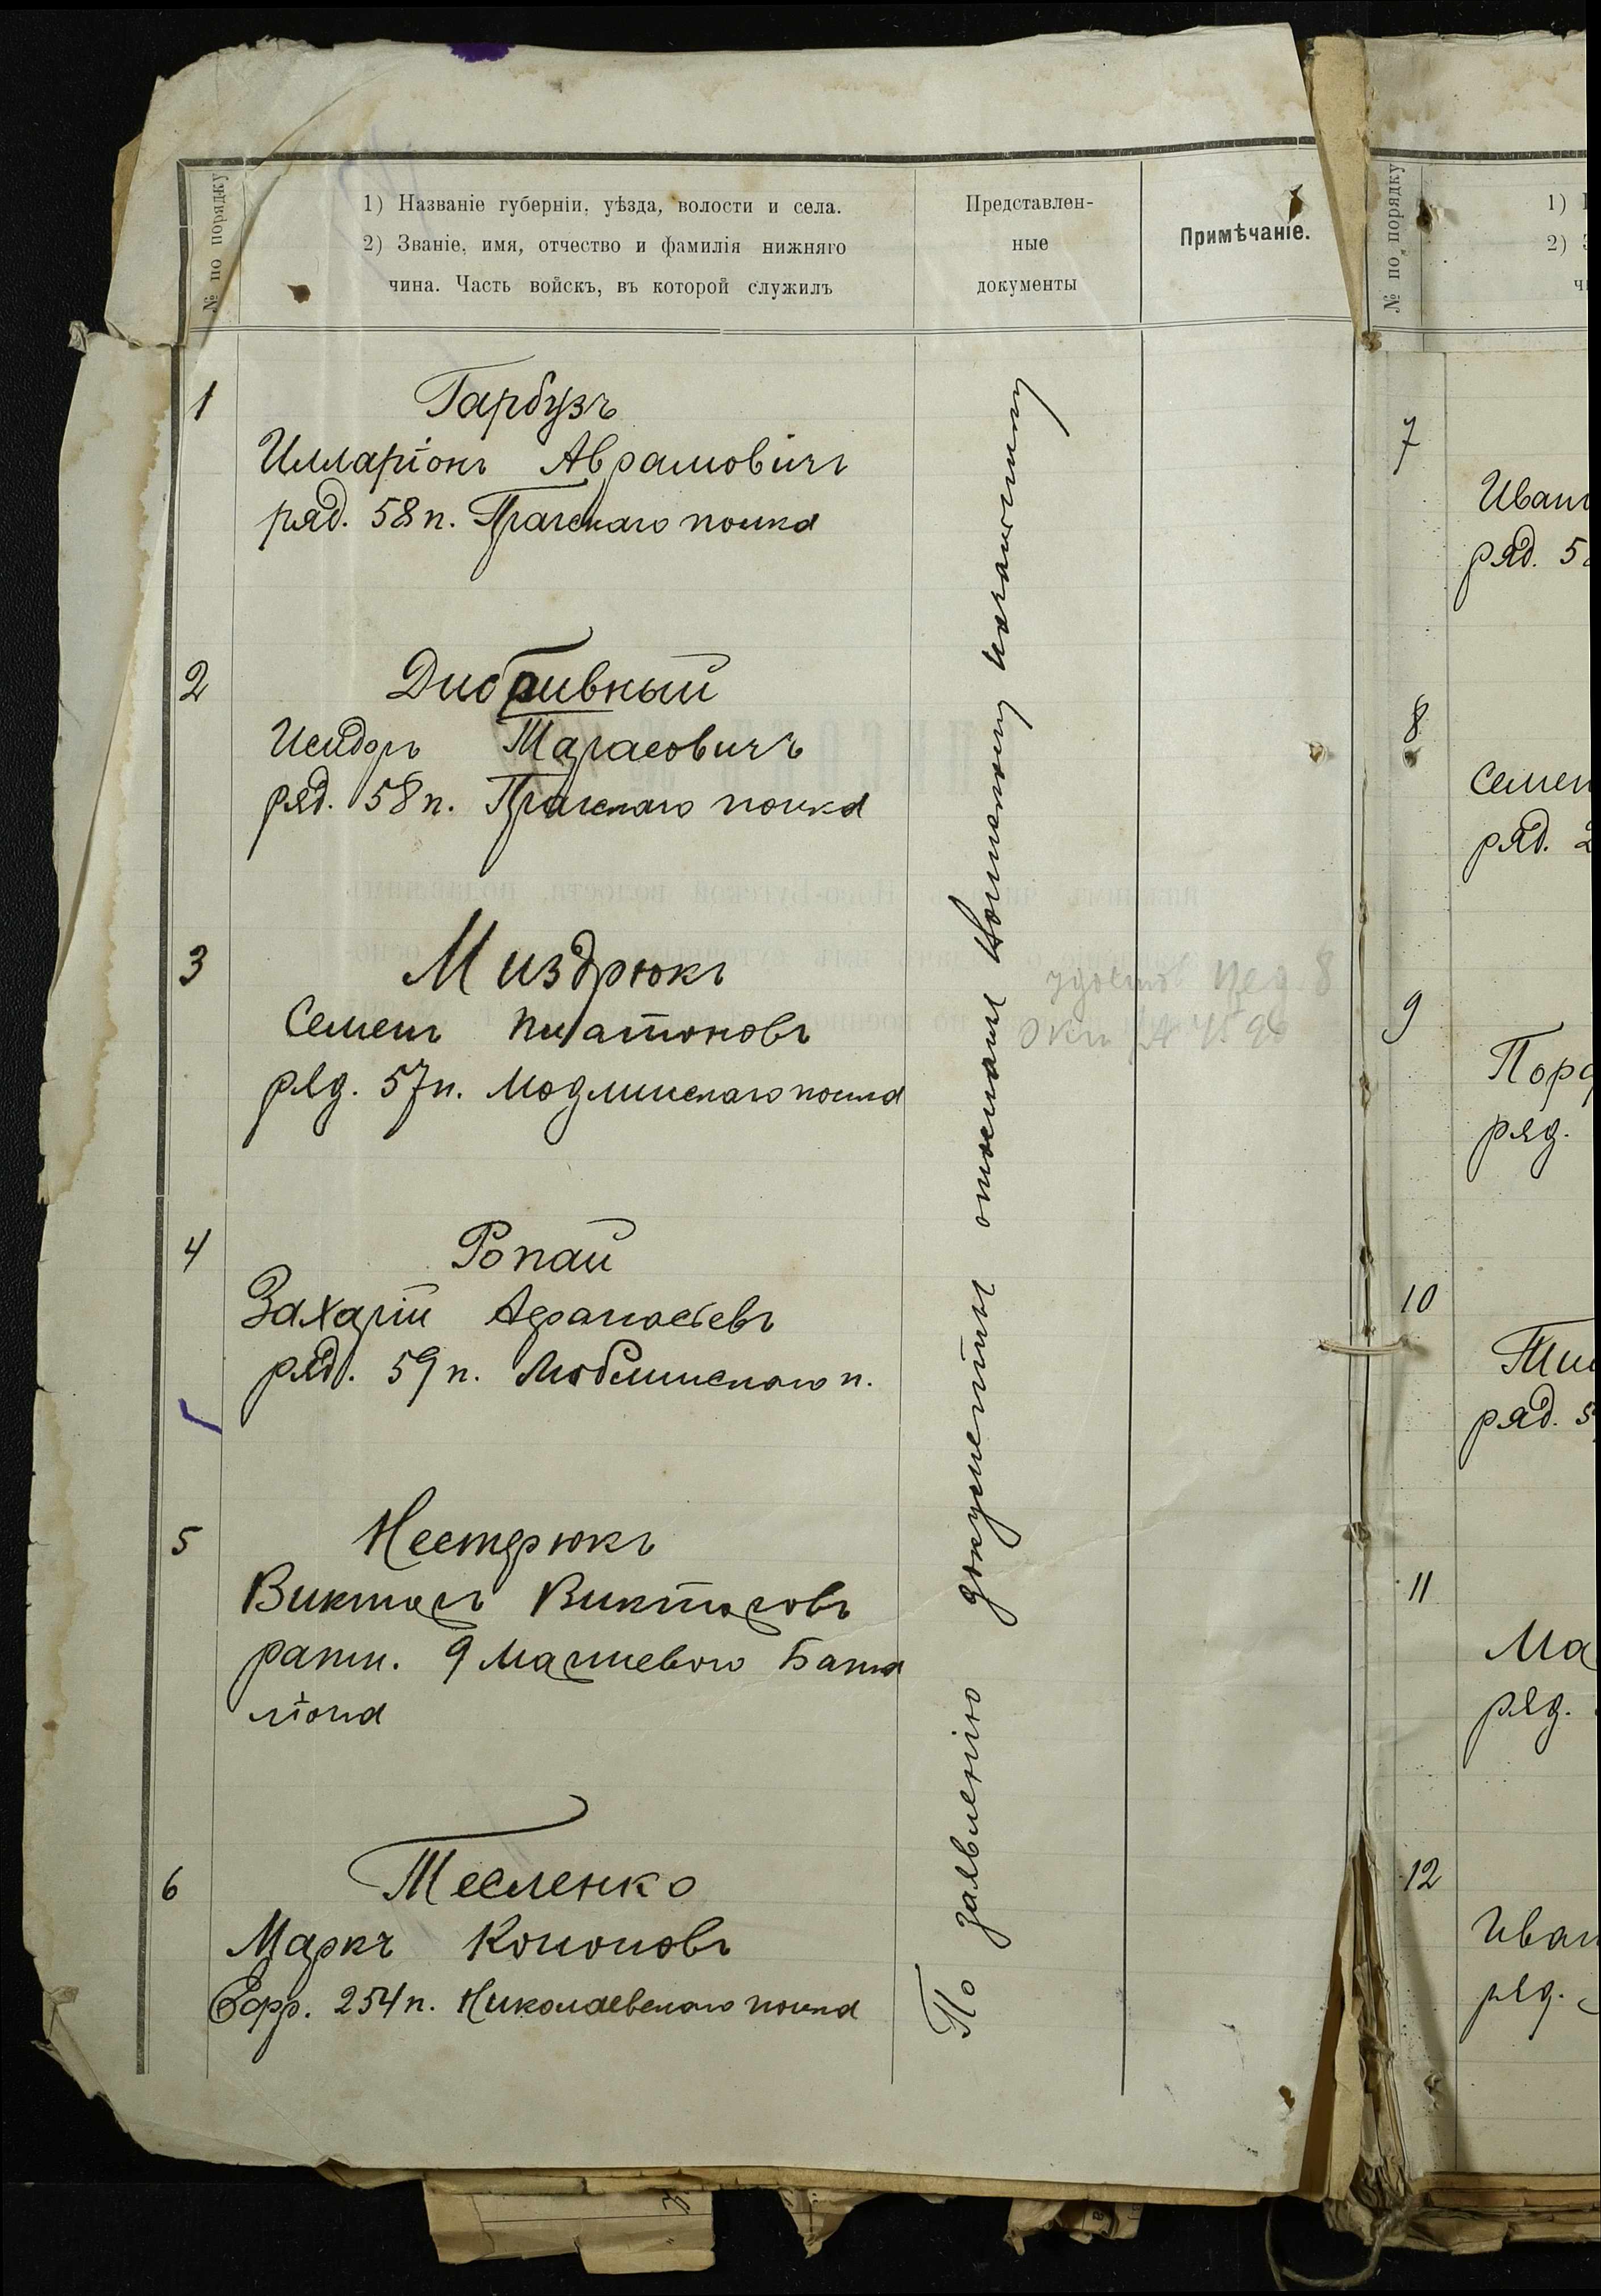 № по порядку
1) Названіе губерніи, уѣзда, волости и села.
2) Званіе, имя, отчество и фамилія нижняго
чина. Часть войскъ, въ которой служилъ
Представлен-
ные
документы
Примѣчаніе.
1
Гарбузъ
Илларіонъ Аврамовичъ
ряд. 58 п. Прагскаго полка
2
Дибривный
Исидоръ Тарасовичъ
ряд. 58 п. Прагскаго полка
3
Миздрюкъ
Семенъ Платоновъ
ряд. 57 п. Модлинскаго полка
4
Ропай
Захарій Афанасіевъ
ряд. 59 п. Люблинскаго п.
5
Нестерюкъ
Викторъ Викторовъ
ратн. 9 Маршевого Бата
ліона
6
Тесленко
Маркъ Кононовъ
Ефр. 254 п. Николаевскаго полка
По заявленію документы отосланы Воинскому Начальнику
№ по порядку
1)
2)
7
Иван
ряд. 5
8
Семен
ряд. 2
9
Пор
ряд.
10
Ти
ряд. 5
11
Ма
ряд.
12
Иван
ряд.